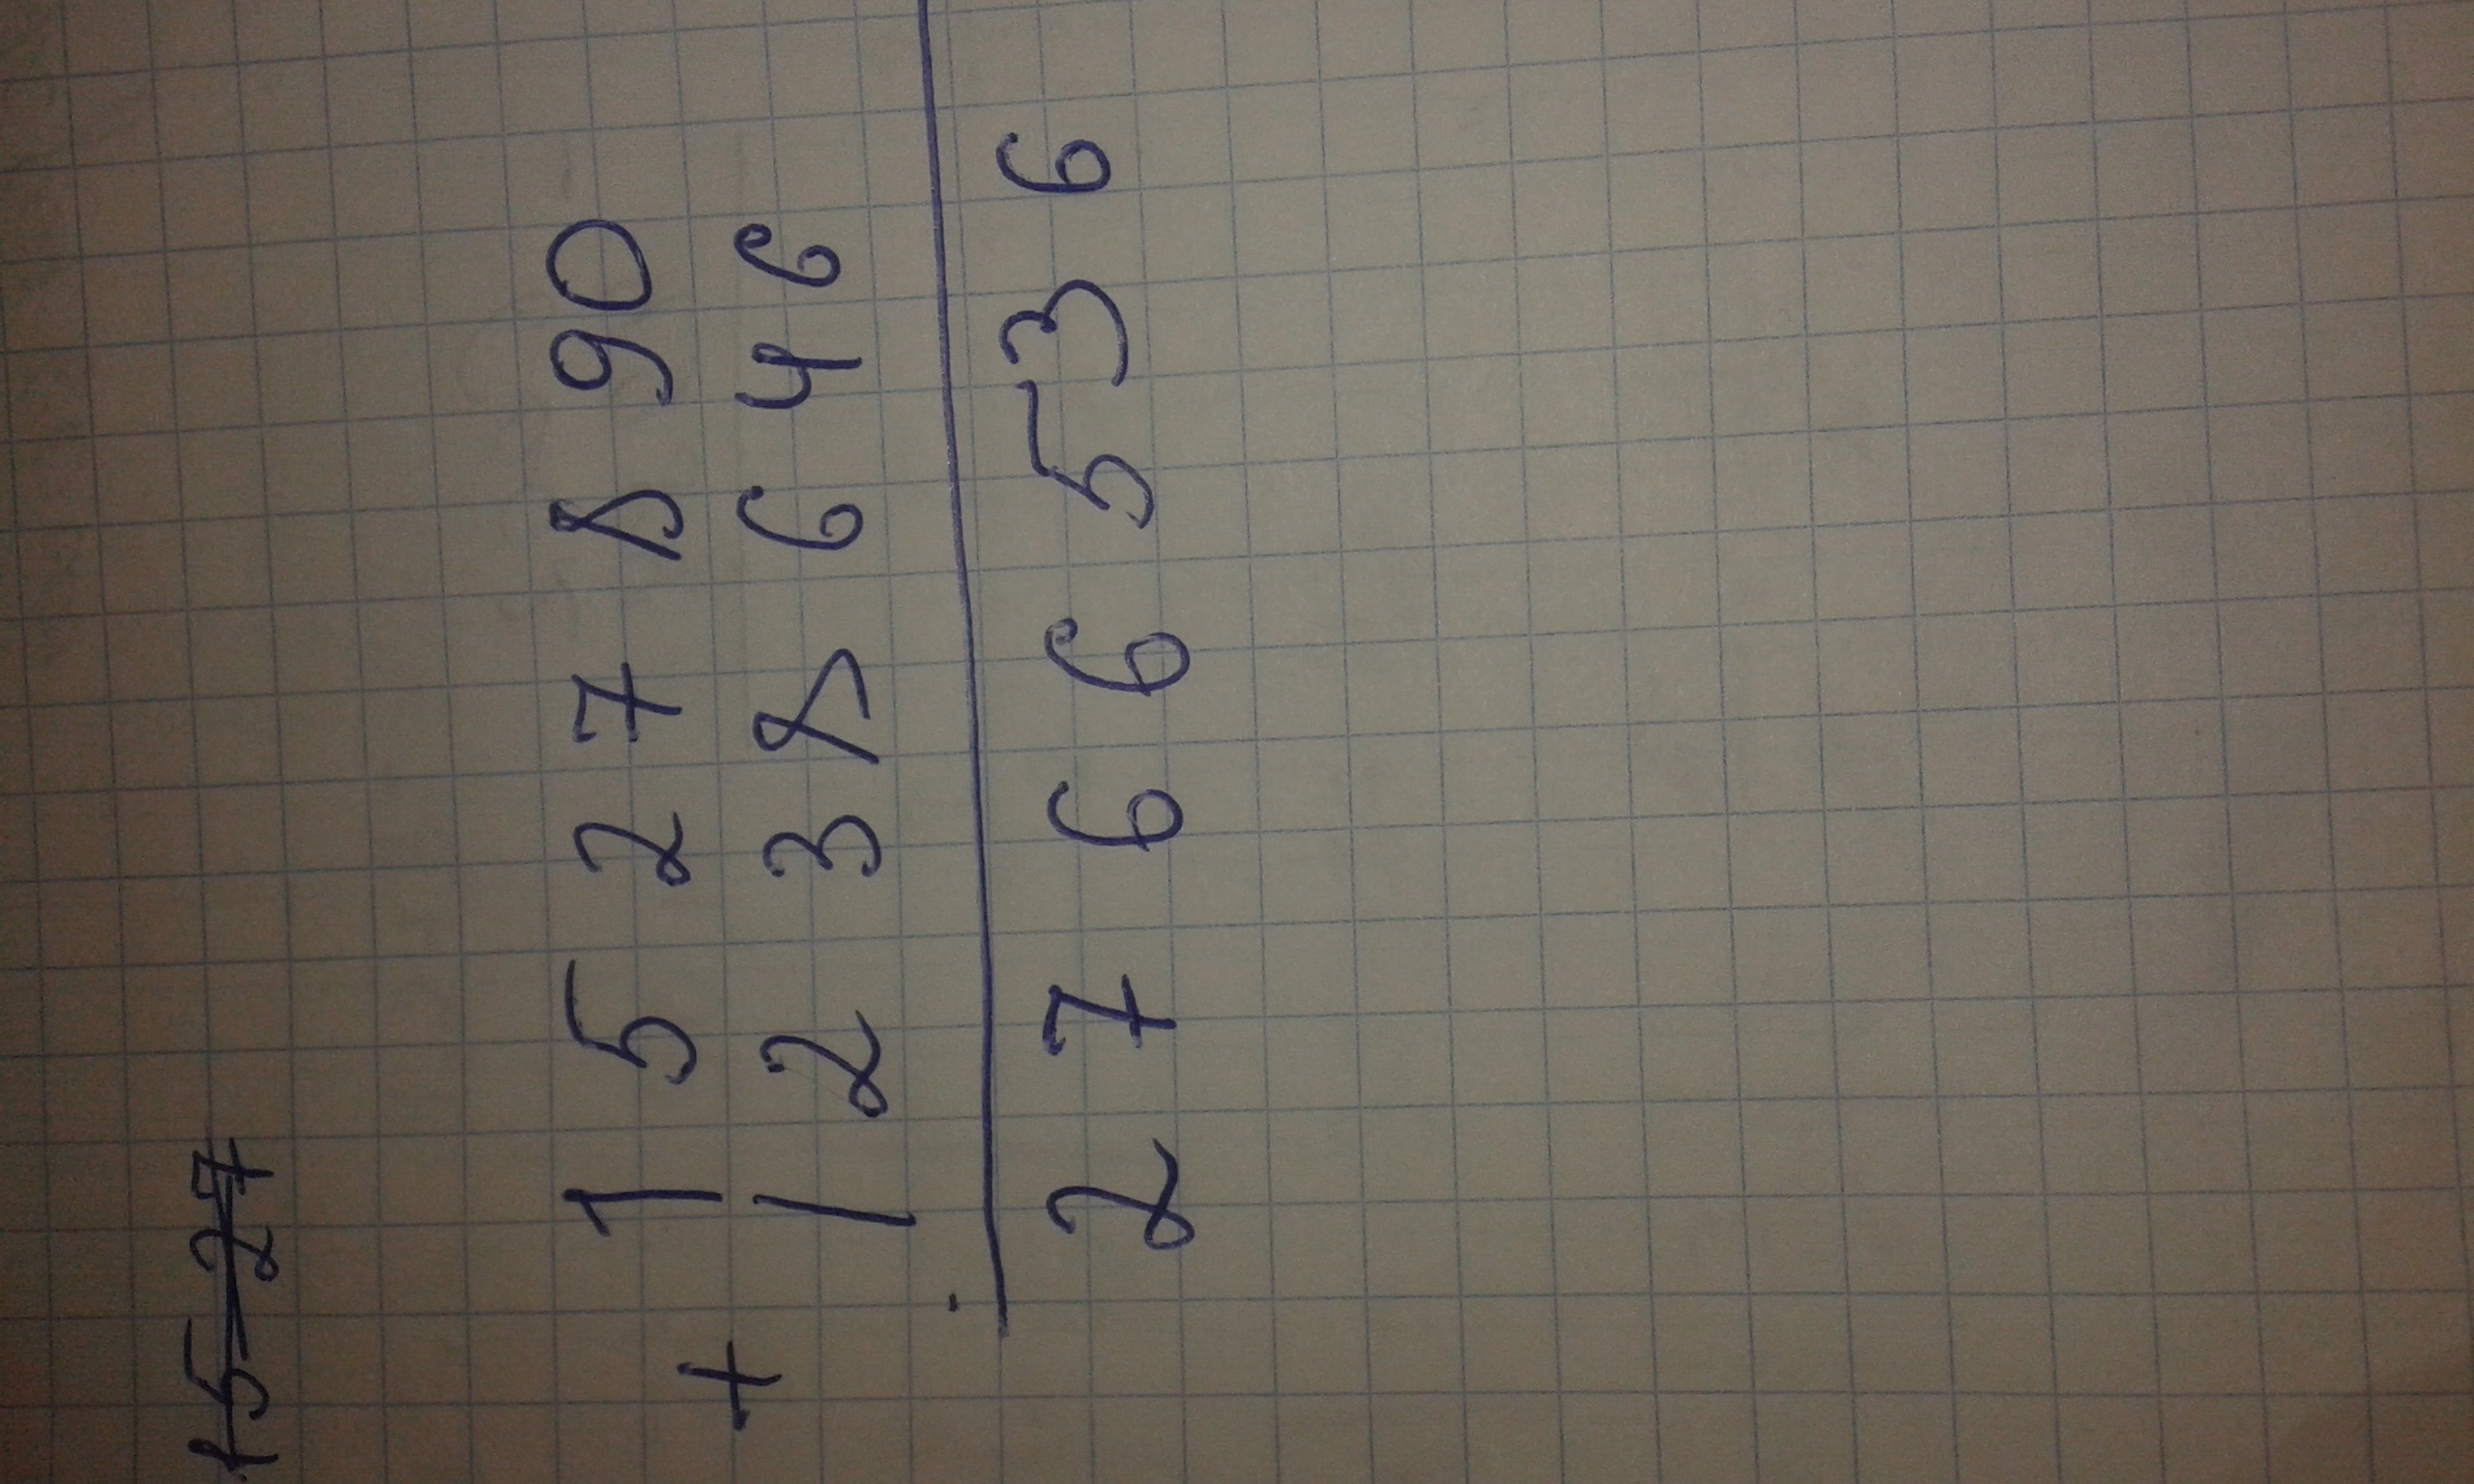 1527
1527890
+
1238646
2766536